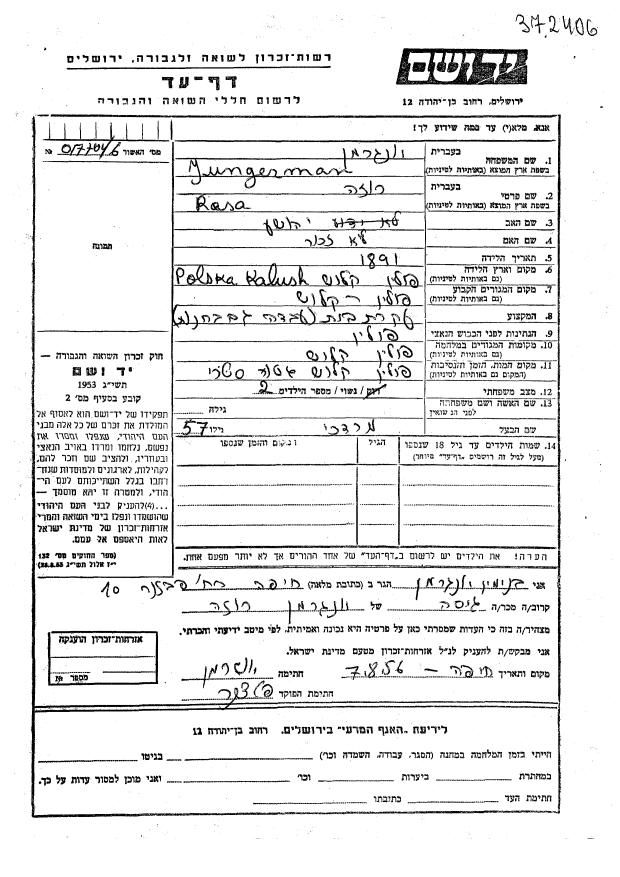 37.2406
רשות-זכרון לשואה ולגבורה, ירושלים
יד ושם
דף-עד
לרשום חללי השואה והגבורה
ירושלים, רחוב בן-יהודה 12
אנא, מלא(י) עד כמה שידוע לך!
מס' האשור №
תמונה
1. שם המשפחה בעברית
בשפת ארץ המוצא (באותיות לטיניות)
Jungerman
2. שם פרטי בעברית רוזה
בשפת ארץ המוצא (באותיות לטיניות)
Rosa
3. שם האב לא ידוע יהושע
4. שם האם לא זכור
5. תאריך הלידה 1891
6. מקום וארץ הלידה פולין קלוש Polska Kalush
(גם באותיות לטיניות)
7. מקום המגורים הקבוע פולין - קלוש
(גם באותיות לטיניות)
8. המקצוע עקרת בית
9. הנתינות לפני הכבוש הנאצי פולין
10. מקומות המגורים במלחמה פולין קלוש
(גם באותיות לטיניות)
11. מקום המות, הזמן והנסיבות פולין קלוש
(המקום גם באותיות לטיניות)
12. מצב משפחתי רווק/ נשוי/ מספר הילדים 2
13. שם האשה ושם משפחתה
לפני הנשואין
גילה
שם הבעל מרדכי
גילו 57
14. שמות הילדים עד גיל 18 שנספו
(מעל לגיל זה רושמים "דף-עד" מיוחד)
הגיל
המקום והזמן שנספו
חוק זכרון השואה והגבורה —
יד ושם
תשי"ג 1953
קובע בסעיף מס' 2
תפקידו של יד-ושם הוא לאסוף אל
המולדת את זכרם של כל אלה מבני
העם היהודי, שנפלו ומסרו את
נפשם, נלחמו ומרדו באויב הנאצי
ובעוזריו, ולהציב שם וזכר להם,
לקהילות, לארגונים ולמוסדות שנח-
רבו בגלל השתייכותם לעם הי-
הודי, ולמטרה זו יהא מוסמך —
...(4) להעניק לבני העם היהודי
שהושמדו ונפלו בימי השואה והמרי
אזרחות-זכרון של מדינת ישראל
לאות היאספם אל עמם.
(ספר החוקים מס' 132
י"ז אלול תשי"ג 28.8.53)
הערה! את הילדים יש לרשום ב"דף-העד" של אחד ההורים אך לא יותר מפעם אחת.
אני בנימין הגר ב (כתובת מלאה) חיפה רח' 10
קרוב/ה מכר/ה גיסה של רוזה
מצהיר/ה בזה כי העדות שמסרתי כאן על פרטיה היא נכונה ואמיתית, לפי מיטב ידיעתי והכרתי.
אני מבקש/ת להעניק לנ"ל אזרחות-זכרון מטעם מדינת ישראל.
מקום ותאריך חיפה - 7.8.56 חתימה
חתימת הפוקד
אזרחות-זכרון הוענקה
מספר №
לידיעת "האגף המרעי" בירושלים, רחוב בן-יהודה 12
הייתי בזמן המלחמה במחנה (הסגר, עבודה, השמדה וכו') בגיטו
במחתרת ביערות וכו' ואני מוכן למסור עדות על כך.
חתימת העד כתובתו